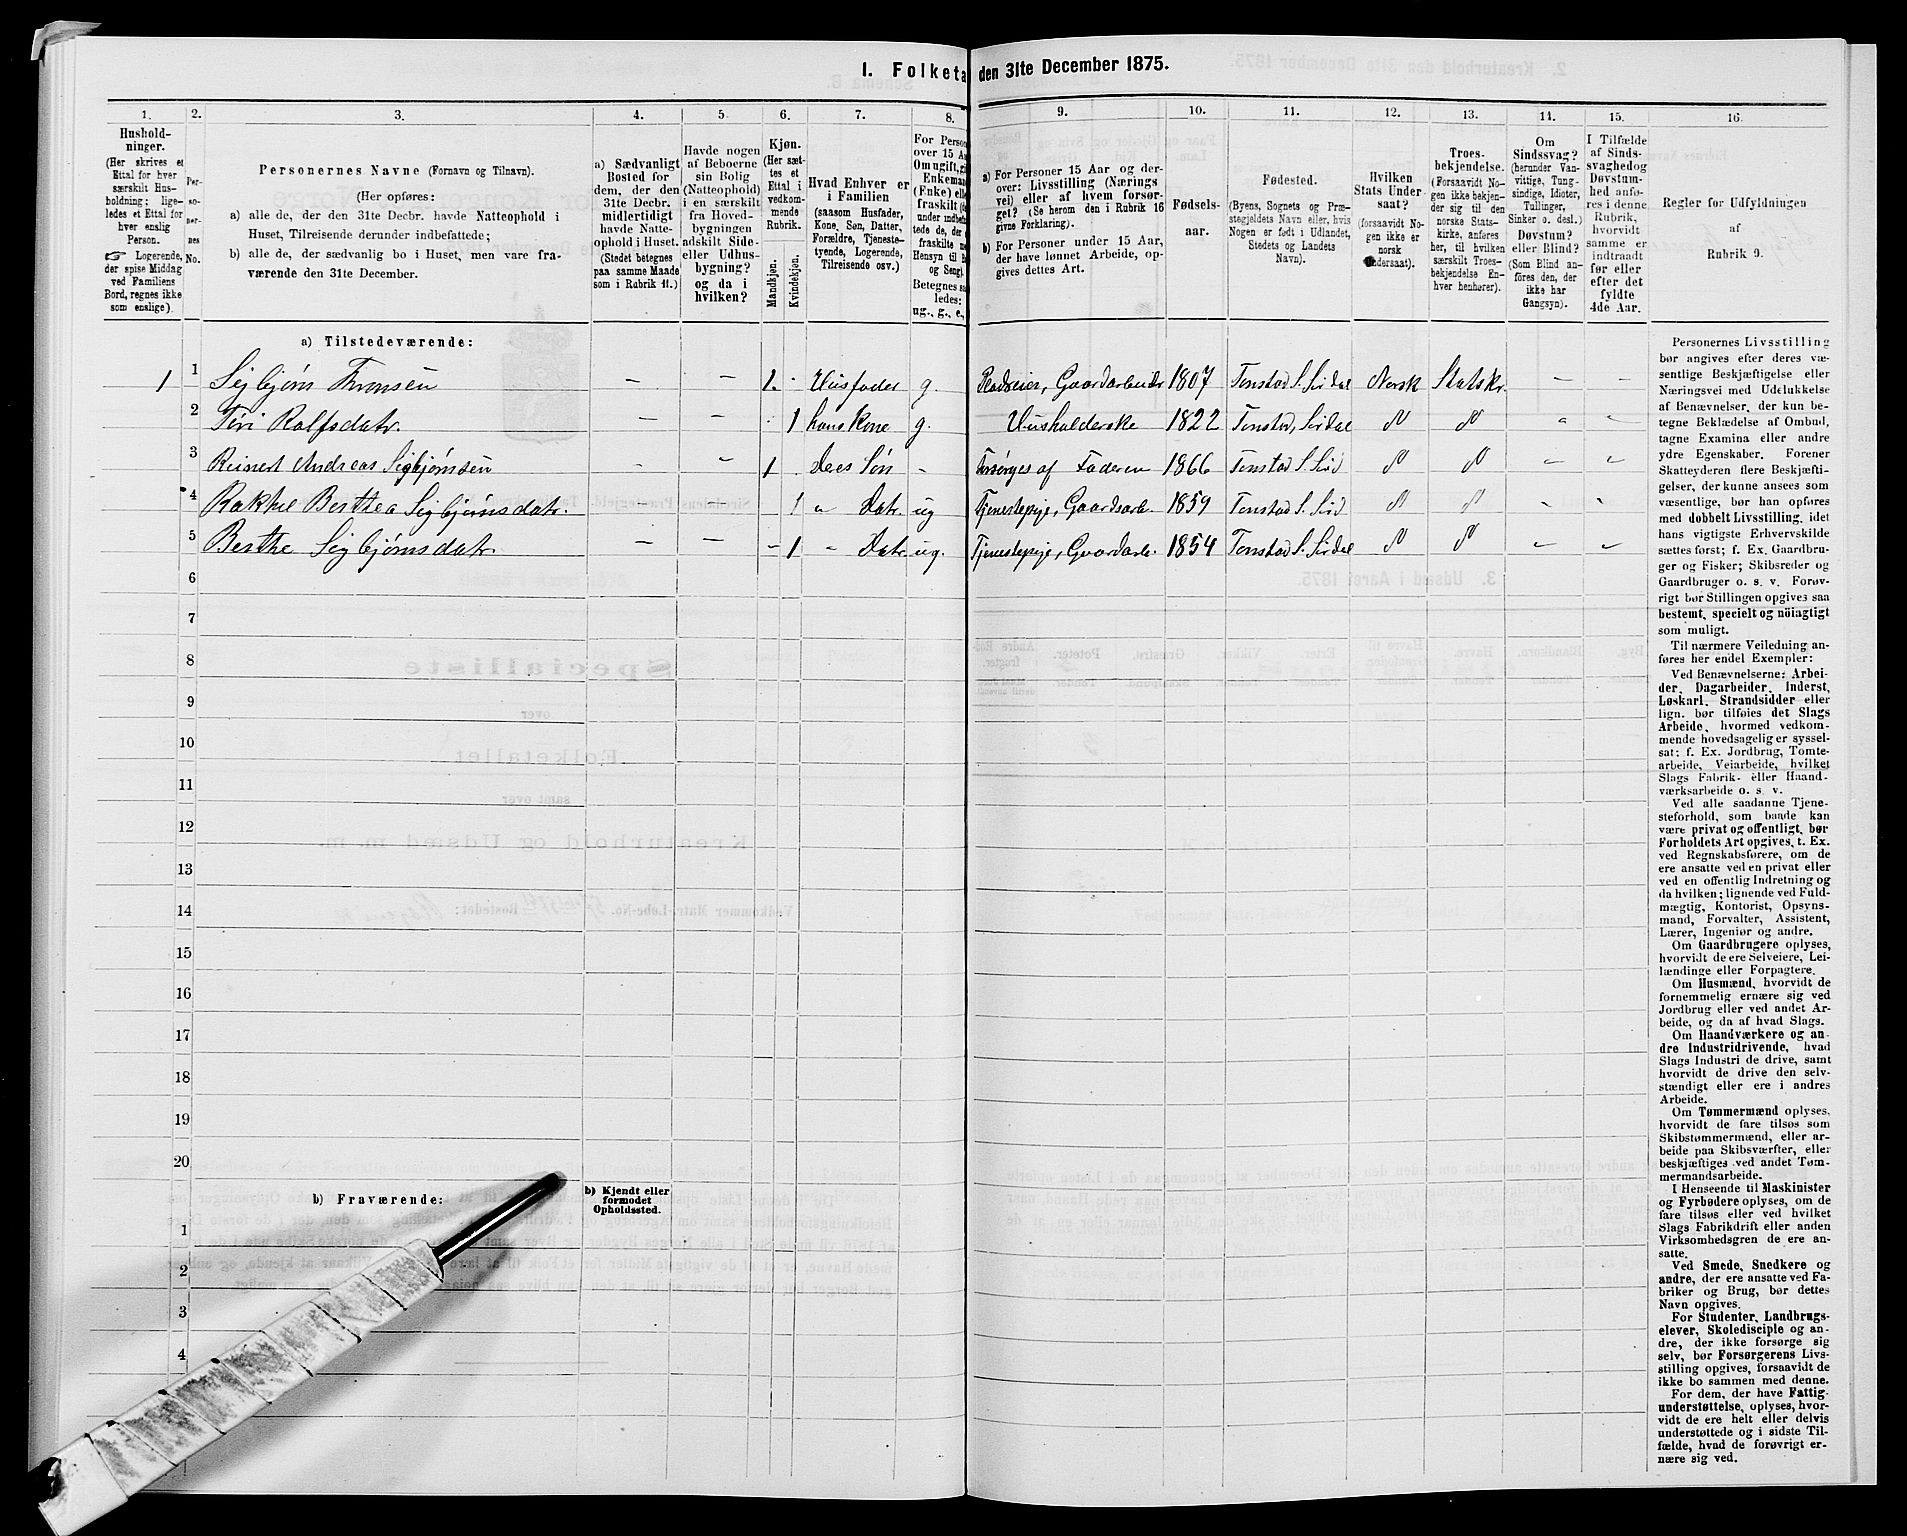 I. Folketa den 31te December 1875.
1. 2. 3. 4. 5. 6. 7. 8. 9. 10. 11. 12. 13. 14. 15. 16.
Hushold-
ninger.
(Her skrives et
Ettal for hver
særskilt Hus-
holdning; lige-
ledes et Ettal for
hver enslig
Person.
☞ Logerende,
der spise Middag
ved Familiens
Bord, regnes ikke
som enslige).
Per-
so-
ner-
nes
No.
Personernes Navne (Fornavn og Tilnavn).
(Her opføres:
a) alle de, der den 31te Decbr. havde Natteophold i
Huset, Tilreisende derunder indbefattede;
b) alle de, der sædvanlig bo i Huset, men vare fra-
værende den 31te December.
a) Sædvanligt
Bosted for
dem, der den
31te Decbr.
midlertidigt
havde Natte-
ophold i Huset.
(Stedet betegnes
paa samme Maade
som i Rubrik 11.)
Havde nogen
af Beboerne
sin Bolig
(Natteophold)
i en særskilt
fra Hoved-
bygningen
adskilt Side-
eller Udhus-
bygning?
og da i
hvilken?
Kjøn.
(Her sæt-
tes et
Ettal i
vedkom-
mende
Rubrik.
Mandkjøn.
Kvindekjøn.
Hvad Enhver er
i Familien
(saasom Husfader,
Kone, Søn, Datter,
Forældre, Tjeneste-
tyende, Logerende,
Tilreisende osv.)
For Person
over 15 Aa
Om ugift, gi
Enkemand
(Enke) elle
fraskilt
under indbe
tede de, der
fraskilte
Hensyn til B
og Seng).
Betegnes saa
ledes:
ug., g., e.,
a) For Personer 15 Aar og der-
over: Livsstilling (Nærings-
vei) eller af hvem forsør-
get? (Se herom den i Rubrik 16
givne Forklaring).
b) For Personer under 15 Aar,
der have lønnet Arbeide, op-
gives dettes Art.
Fødsels-
aar.
Fødested.
(Byens, Sognets og Præ-
stegjeldets Navn eller, hvis
Nogen er født i Udlandet,
Stedets og Landets
Navn).
Hvilken
Stats Under-
saat?
(forsaavidt No-
gen ikke er
norsk
Undersaat).
Troes-
bekjendelse.
(Forsaavidt No-
gen ikke bekjen-
der sig til den
norske Stats-
kirke, anføres
her, til hvilken
særskilt Troes-
bekjendelse En-
hver henhører).
Om
Sindssvag?
(herunder Van-
vittige, Tung-
sindige, Idioter,
Tullinger,
Sinker o. desl.)
Døvstum?
eller Blind?
(Som Blind an-
føres den, der
ikke har
Gangsyn).
I Tilfælde
af Sinds-
svaghed og
Døvstum-
hed anfø-
res i denne
Rubrik,
hvorvidt
samme er
indtraadt
før eller
efter det
fyldte
4de Aar.
Regler for Udfyldningen
af
Rubrik 9.
a) Tilstedeværende:
1 1 Sigbjørn Tronsen — — 1. Husfader g. Pladseier, Gaardarbeider 1807 Tonstad S. Sirdal Norsk Statskr. — —
2 Tiri Rolfsdatr. — — 1 hans Kone g. Husholderske 1822 Tonstad, Sirdal
3 Reinert Andreas Sigbjørnsen — — 1 Dees Søn — Forsørges af Faderen 1866 Tonstad S. Sird
4 Rakhel Berthea Sigbjørnsdatr. 1 " Datr. ug Tjenestepige, Gaardsarb. 1859 Tonstad S. Sird
5 Berthe Sigbjørnsdatr. — — — 1 " Datr. ug. Tjenestepige, Gaardarb. 1854 Tonstad S. Sirdal
6
7
8
9
10
11
12
13
14
15
16
17
18
19
20
b) Fraværende:
b) Kjendt eller
formodet
Opholdssted.
1
2
3
4
Personernes Livsstilling
bør angives efter deres væ-
sentlige Beskjæftigelse eller
Næringsvei med Udelukkelse
af Benævnelser, der kun be-
tegne Beklædelse af Ombud,
tagne Examina eller andre
ydre Egenskaber. Forener
Skatteyderen flere Beskjæfti-
gelser, der kunne ansees som
væsentlige, bør han opføres
med dobbelt Livsstilling, idet
hans vigtigste Erhvervskilde
sættes først; f. Ex. Gaardbru-
ger og Fisker; Skibsreder og
Gaardbruger o. s. v. Forøv-
rigt bør Stillingen opgives saa
bestemt, specielt og nöiagtigt
som muligt.
Til nærmere Veiledning an-
føres her endel Exempler:
Ved Benævnelserne: Arbei-
der, Dagarbeider, Inderst,
Løskarl, Strandsidder eller
lign. bør tilføies det Slags
Arbeide, hvormed vedkom-
mende hovedsagelig er syssel-
sat; f. Ex. Jordbrug, Tomte-
arbeide, Veiarbeide, hvilket
Slags Fabrik- eller Haand-
værksarbeide o. s. v.
Ved alle saadanne Tjene-
steforhold, som baade kan
være privat og offentligt, bør
Forholdets Art opgives, t. Ex.
ved Regnskabsførere, om de
ere ansatte ved en privat eller
ved en offentlig Indretning og
da hvilken; lignende ved Fuld-
mægtig, Kontorist, Opsyns-
mand, Forvalter, Assistent,
Lærer, Ingeniør og andre.
Om Gaardbrugere oplyses,
hvorvidt de ere Selveiere, Lei-
lændinge eller Forpagtere.
Om Husmænd, hvorvidt de
fornemmelig ernære sig ved
Jordbrug eller ved andet Ar-
beide, og da af hvad Slags.
Om Haandværkere og an-
dre Industridrivende, hvad
Slags Industri de drive, samt
hvorvidt de drive den selv-
stændigt eller ere i andres
Arbeide.
Om Tømmermænd oplyses,
hvorvidt de fare tilsøs som
Skibstømmermænd, eller ar-
beide paa Skibsværfter, eller
beskjæftiges ved andet Tøm-
mermandsarbeide.
I Henseende til Maskinister
og Fyrbødere oplyses, om de
fare tilsøs eller ved hvilket
Slags Fabrikdrift eller anden
Virksomhedsgren de ere an-
satte.
Ved Smede, Snedkere og
andre, der ere ansatte ved Fa-
briker og Brug, bør dettes
Navn opgives.
For Studenter, Landbrugs-
elever, Skoledisciple og an-
dre, der ikke forsørge sig
selv, bør Forsørgerens Livs-
stilling opgives, forsaavidt de
ikke bo sammen med denne.
For dem, der have Fattig-
understøttelse, oplyses, hvor-
vidt de ere helt eller delvis
understøttede og i sidste Til-
fælde, hvad de forøvrigt er-
nære sig ved.